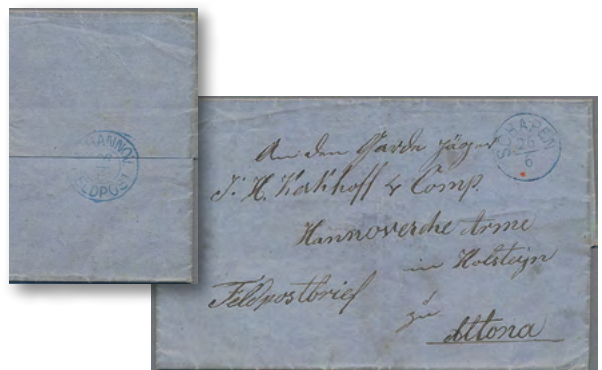 HANNOV.
FELDPOST
SCHAPEN
26
6
An den Garde Jäger
J. H. Kerkhoff & Comp.
Hannoversche Arme
im Holsteijn
Feldpostbrief
zu
Altona